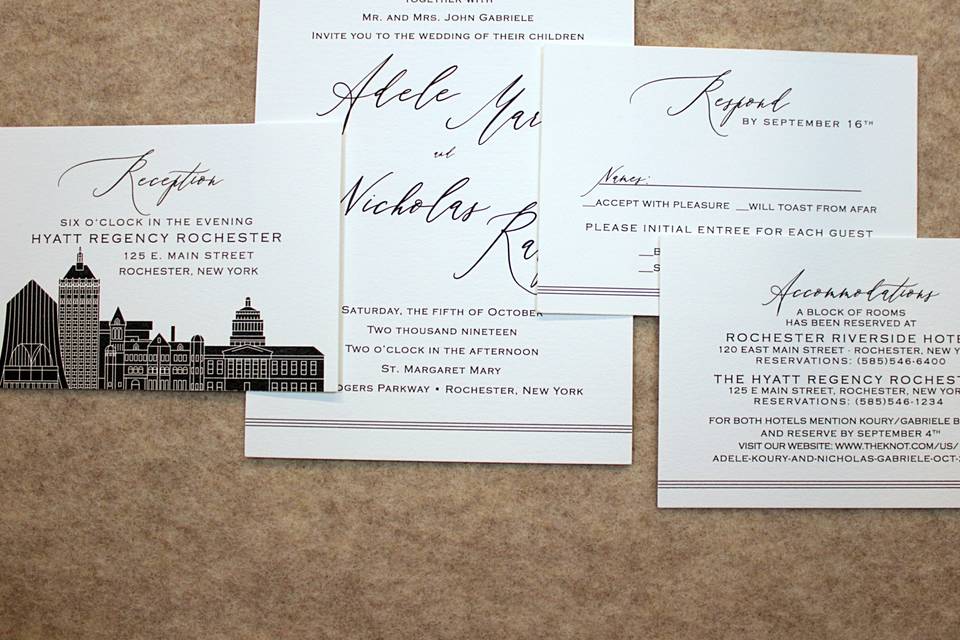 TOGETHER WITH
MR. AND MRS. JOHN GABRIELE
INVITE YOU TO THE WEDDING OF THEIR CHILDREN
Adele
and
Nicholas
SATURDAY, THE FIFTH OF OCTOBER
TWO THOUSAND NINETEEN
TWO O'CLOCK IN THE AFTERNOON
ST. MARGARET MARY
PARKWAY • ROCHESTER, NEW YORK
Reception
SIX O'CLOCK IN THE EVENING
HYATT REGENCY ROCHESTER
125 E. MAIN STREET
ROCHESTER, NEW YORK
Respond
BY SEPTEMBER 16TH
Names:
__ACCEPT WITH PLEASURE __WILL TOAST FROM AFAR
PLEASE INITIAL ENTREE FOR EACH GUEST
Accommodations
A BLOCK OF ROOMS
HAS BEEN RESERVED AT
ROCHESTER RIVERSIDE HOTE
120 EAST MAIN STREET · ROCHESTER, NEW Y
RESERVATIONS: (585)546-6400
THE HYATT REGENCY ROCHEST
125 E MAIN STREET, ROCHESTER, NEW YO
RESERVATIONS: (585)546-1234
FOR BOTH HOTELS MENTION KOURY/GABRIELE B
AND RESERVE BY SEPTEMBER 4TH
VISIT OUR WEBSITE: WWW.THEKNOT.COM/US/
ADELE-KOURY-AND-NICHOLAS-GABRIELE-OCT-2